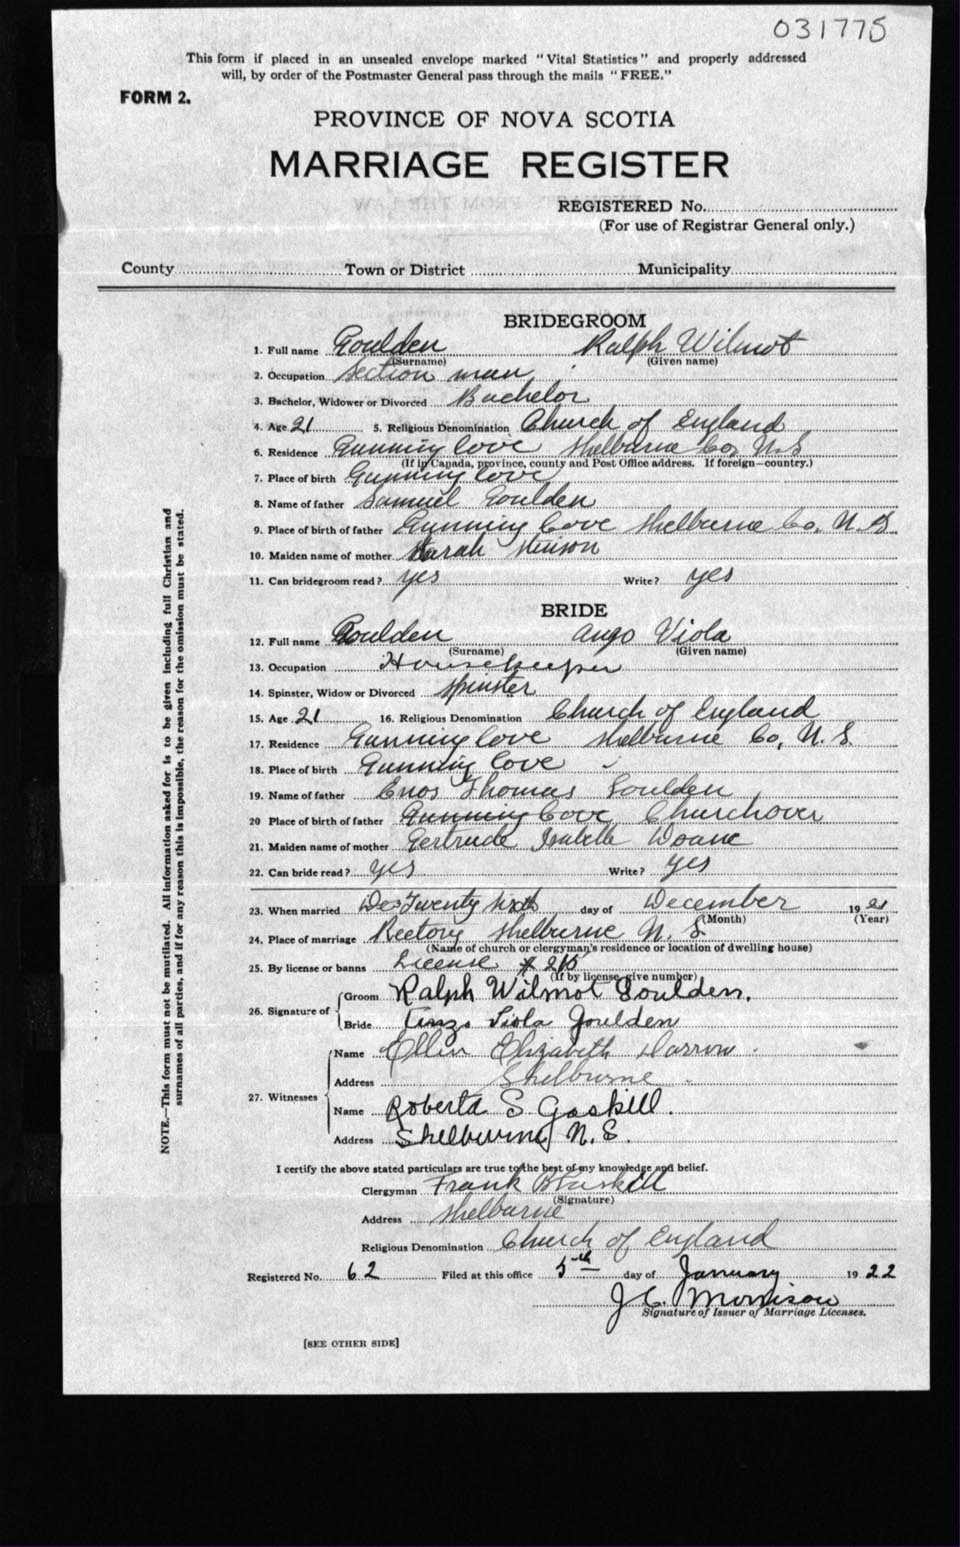 031775
This form if placed in an unsealed envelope marked "Vital Statistics" and properly addressed
will, by order of the Postmaster General pass through the mails "FREE."
FORM 2.
PROVINCE OF NOVA SCOTIA
MARRIAGE REGISTER
REGISTERED No.
(For use of Registrar General only.)
County Town or District Municipality
BRIDEGROOM
1. Full name Goulden Ralph Wilmot
(Surname) (Given name)
2. Occupation Section man
3. Bachelor, Widower or Divorced Bachelor
4. Age 21 5. Religious Denomination Church of England
6. Residence Gunning Cove Shelburne Co, N.S
(If in Canada, province, county and Post Office address. If foreign—country.)
7. Place of birth Gunning Cove
8. Name of father Samuel Goulden
9. Place of birth of father Gunning Cove Shelburne Co, N. S
10. Maiden name of mother Sarah
11. Can bridegroom read? yes Write? yes
BRIDE
12. Full name Goulden Viola
(Surname) (Given name)
13. Occupation Housekeeper
14. Spinster, Widow or Divorced Spinster
15. Age 21 16. Religious Denomination Church of England
17. Residence Gunning Cove Shelburne Co, N. S.
18. Place of birth Gunning Cove
19. Name of father Enos Thomas Goulden
20 Place of father Gunning Cove Churchover
21. Maiden name of mother Gertrude Isabelle Doane
22. Can bride read? yes Write? yes
23. When married Dec Twenty sixth day of December 1921
(Month) (Year)
24. Place of marriage Rectory Shelburne N. S
(Name of church or clergyman's residence or location of dwelling house)
25. By license or banns License # 215
(If by license, give number)
26. Signature of Groom Ralph Wilmot Goulden.
Bride Viola Goulden
27. Witnesses Name Ellen Elizabeth Darrow
Address Shelburne
Name Roberta S Gaskill.
Address Shelburne, N. S.
I certify the above stated particulars are true to the best of my knowledge and belief.
Clergyman Frank B Gaskill
(Signature)
Address Shelburne
Religious Denomination Church of England
Registered No. 62 Filed at this office 5th day of January 1922
J C. Morrison
Signature of Issuer of Marriage Licenses.
[SEE OTHER SIDE]
NOTE.—This form must not be mutilated. All information asked for is to be given including full Christian and
surnames of all parties, and if for any reason this is impossible, the reason for the omission must be stated.